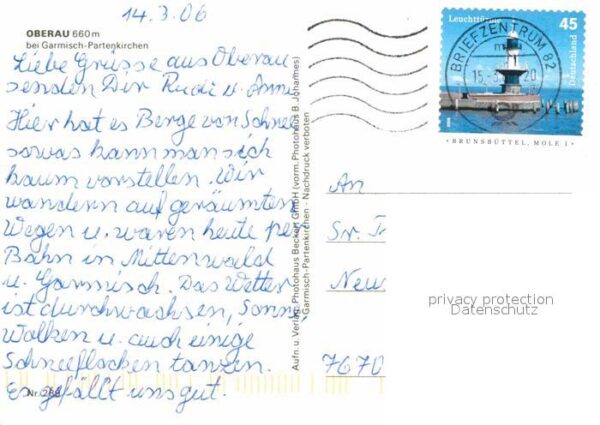 14.3.06
OBERAU 660 m
bei Garmisch-Partenkirchen
Liebe Grüsse aus Oberau
senden Dir Rudi u. Anne
Hier hat es Berge von Schnee
sowas kann man sich
kaum vorstellen. Wir
wandern auf geräumten
Wegen u. waren heute per
Bahn in Mittenwald
u. Garmisch. Das Wetter
ist durchwachsen, Sonne
Wolken u. auch einige
Schneeflocken tanzen.
Es gefällt uns gut.
Nr. 269
Aufn. u. Verlag: Photohaus Beckert GmbH (vorm. Photohaus B. Johannes)
Garmisch-Partenkirchen - Nachdruck verboten
Leuchttürme
45
Deutschland
BRIEFZENTRUM 82
15.
20
BRUNSBÜTTEL, MOLE 1
An
Sr.
Neu
7670
privacy protection
Datenschutz